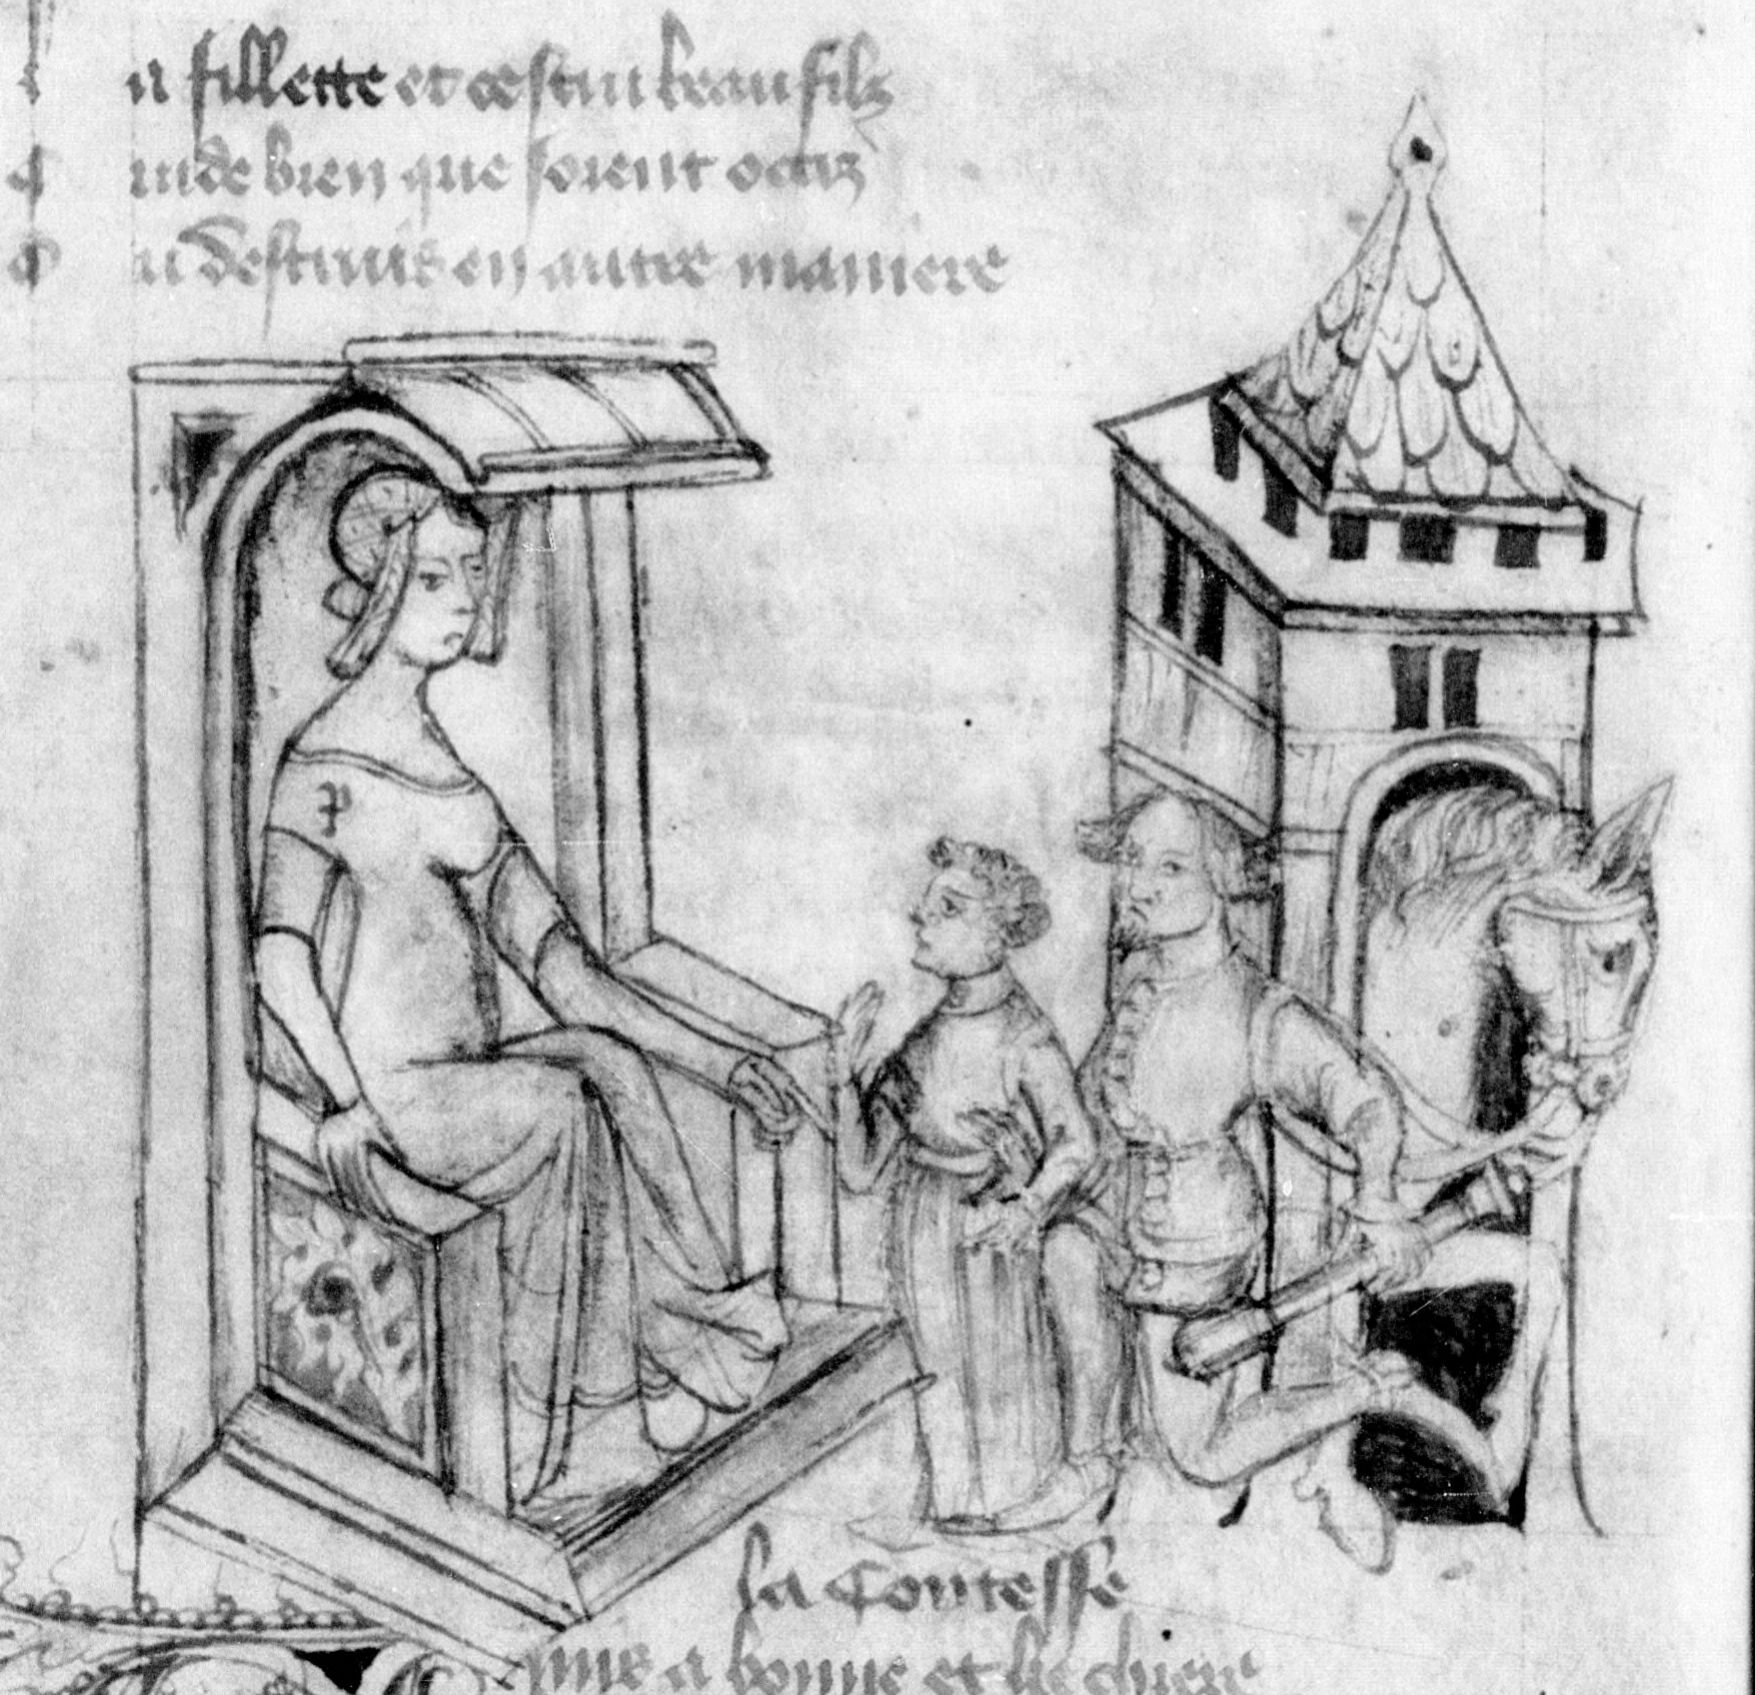 u fillette et cestui beau filz
uide bien que soient occiz
u destruis en autre maniere
P
la Contesse
a bonne et lie chiere